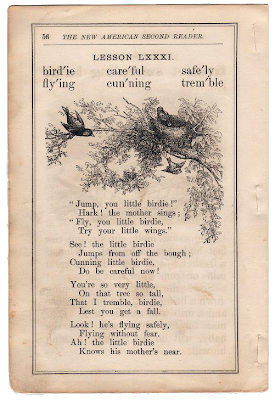 56 THE NEW AMERICAN SECOND READER.
LESSON LXXXI.
bird′ie care′ful safe′ly
fly′ing cun′ning trem′ble
"Jump, you little birdie!"
Hark! the mother sings;
"Fly, you little birdie,
Try your little wings."
See! the little birdie
Jumps from off the bough;
Cunning little birdie,
Do be careful now!
You're so very little,
On that tree so tall,
That I tremble, birdie,
Lest you get a fall.
Look! he's flying safely,
Flying without fear.
Ah! the little birdie
Knows his mother's near.